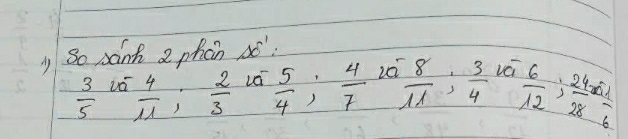 1) So sánh 2 phân số:
3/5 và 4/11 ; 2/3 và 5/4 ; 4/7 và 8/11 ; 3/4 và 6/12 ; 24/28 và 1/6